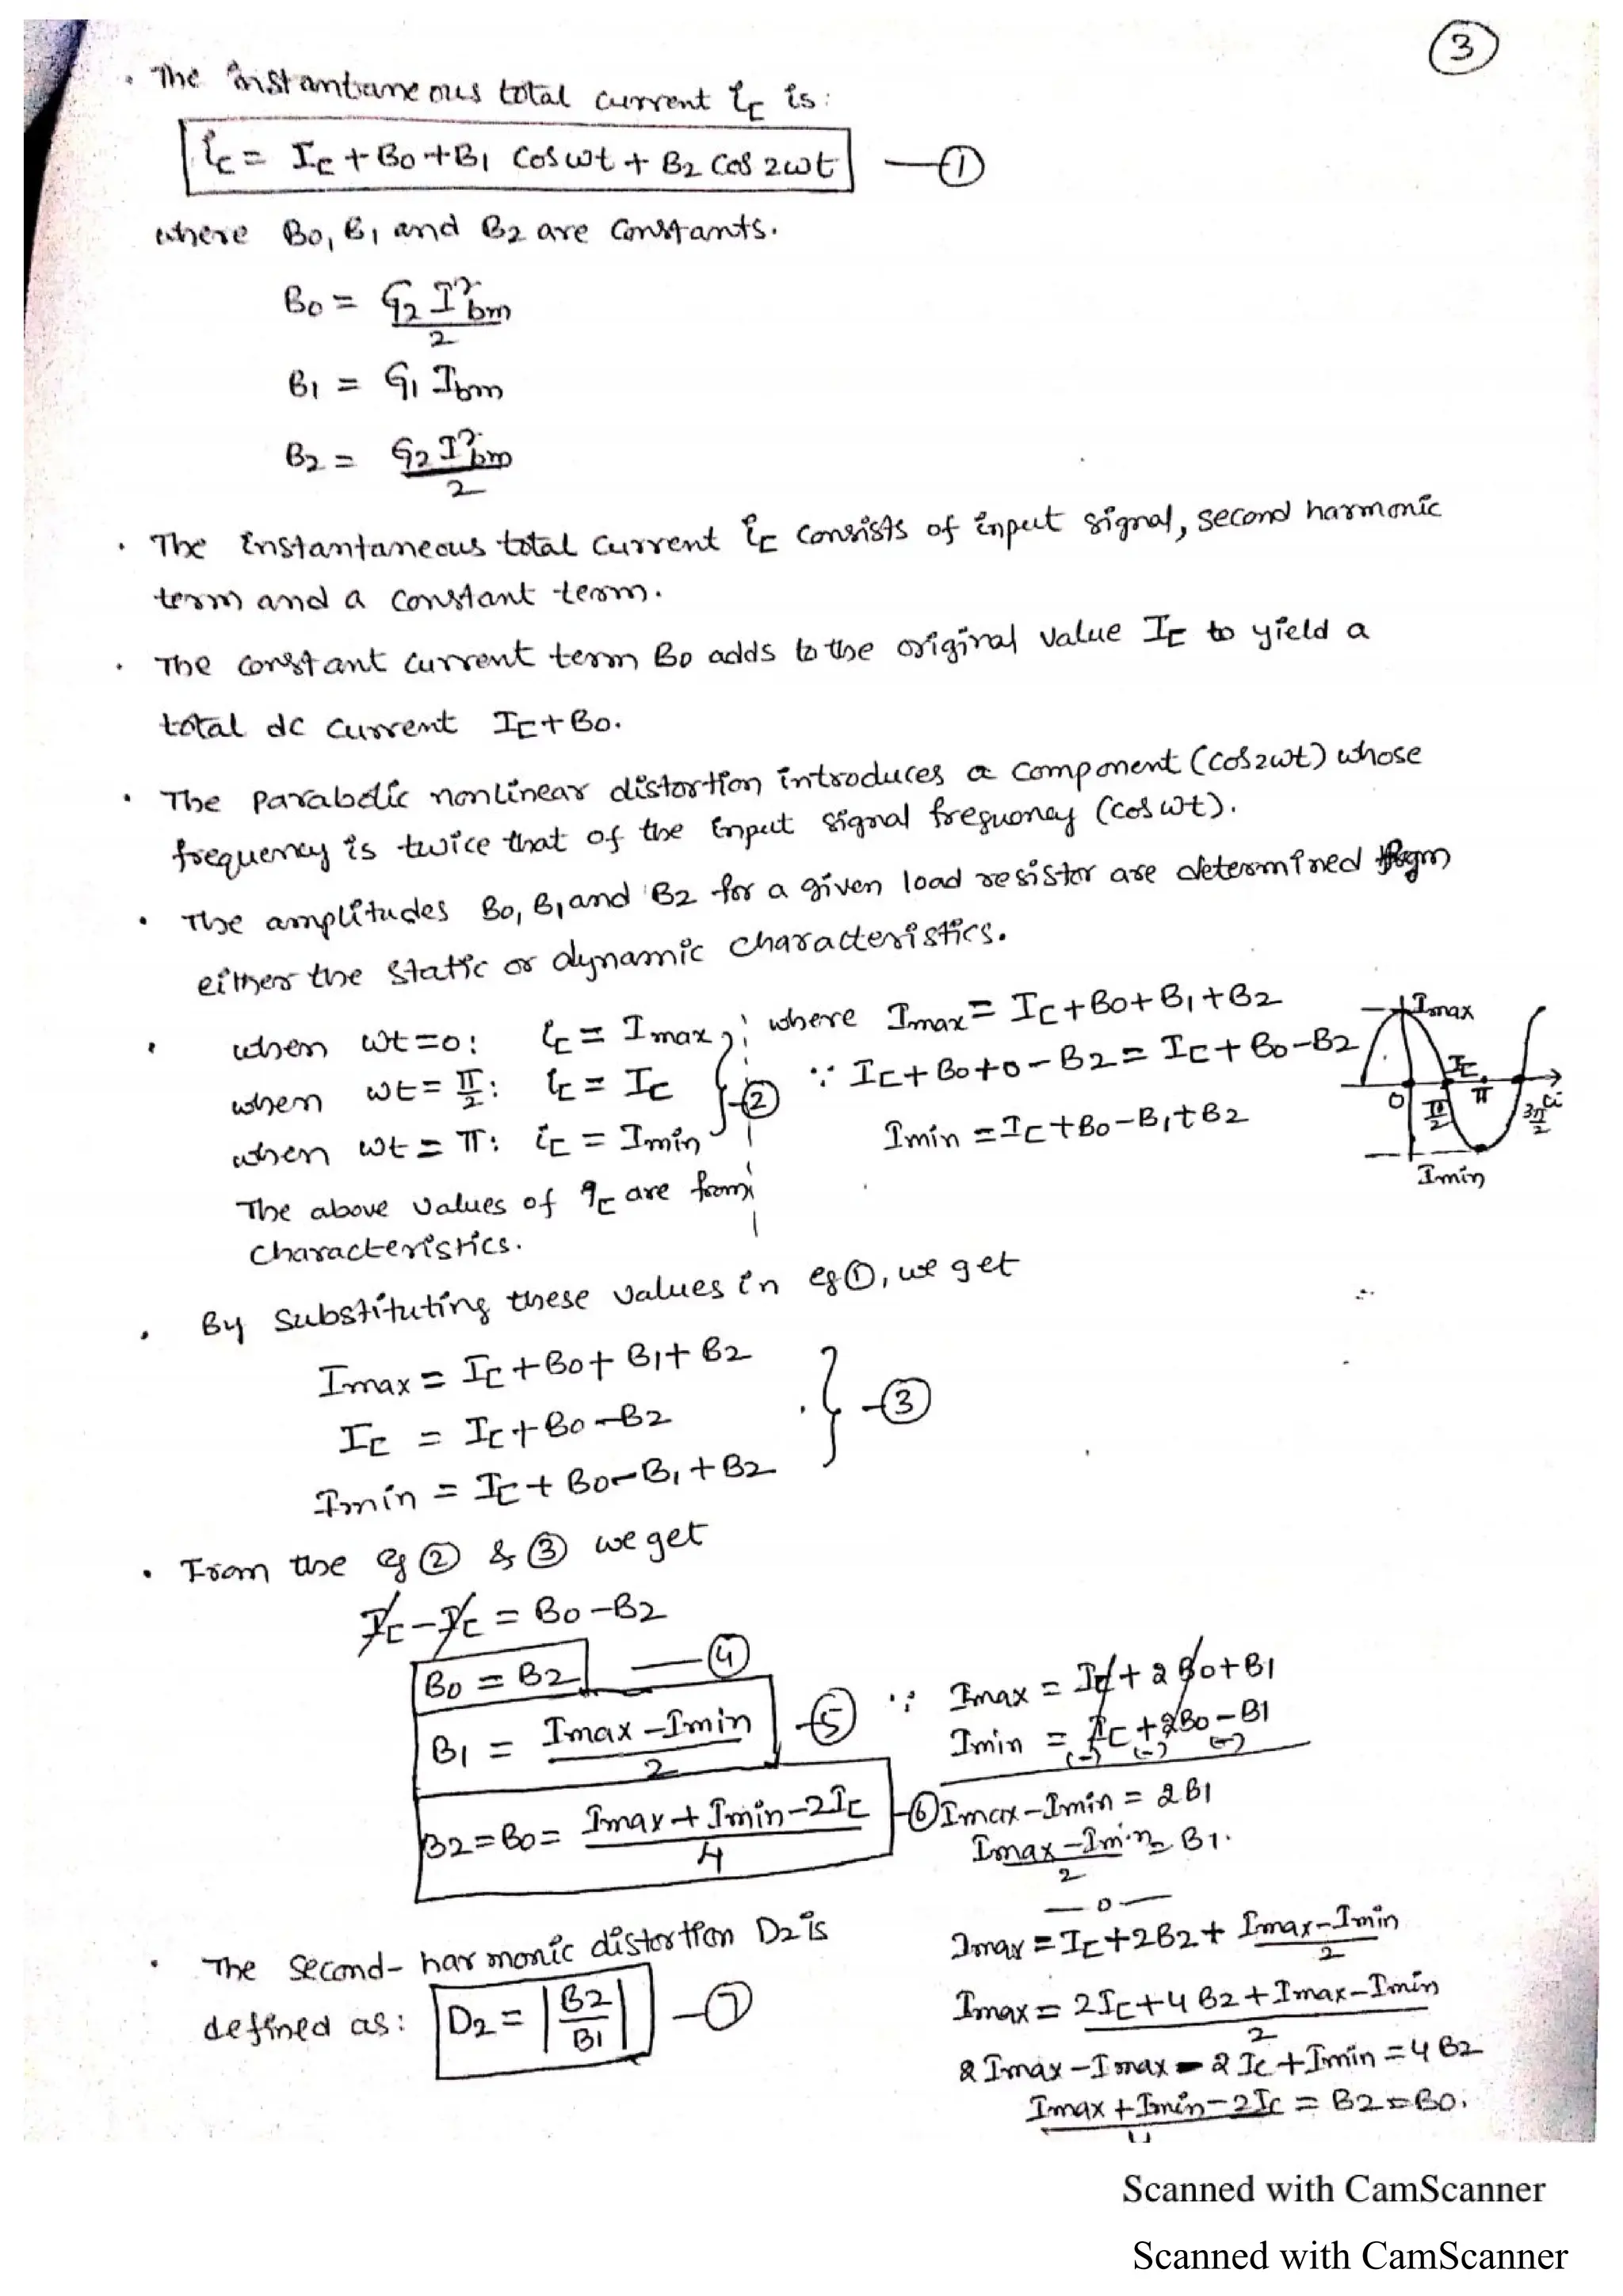 3
• The instantaneous total current ic is:
ic = Ic + B0 + B1 cos wt + B2 cos 2wt —①
where B0, B1 and B2 are constants.
B0 = G2 I²bm / 2
B1 = G1 Ibm
B2 = G2 I²bm / 2
• The instantaneous total current ic consists of input signal, second harmonic
term and a constant term.
• The constant current term B0 adds to the original value Ic to yield a
total dc current Ic + B0.
• The parabolic nonlinear distortion introduces a component (cos 2wt) whose
frequency is twice that of the input signal frequency (cos wt).
• The amplitudes B0, B1 and B2 for a given load resistor are determined from
either the static or dynamic characteristics.
• when wt = 0: ic = Imax
when wt = π/2: ic = Ic } -②
when wt = π: ic = Imin
The above values of ic are from
characteristics.
where Imax = Ic + B0 + B1 + B2
∵ Ic + B0 + 0 - B2 = Ic + B0 - B2
Imin = Ic + B0 - B1 + B2
Imax
Ic
0 π/2 π 3π/2
Imin
• By substituting these values in eq①, we get
Imax = Ic + B0 + B1 + B2
Ic = Ic + B0 - B2 } -③
Imin = Ic + B0 - B1 + B2
• From the eq ② & ③ we get
Ic - Ic = B0 - B2
B0 = B2 —④
B1 = Imax - Imin / 2 -⑤
B2 = B0 = Imax + Imin - 2Ic / 4 -⑥
∵ Imax = Ic + 2B0 + B1
Imin = Ic + 2B0 - B1
(-) (-) (-)
Imax - Imin = 2B1
Imax - Imin / 2 = B1.
—0—
Imax = Ic + 2B2 + Imax - Imin / 2
Imax = 2Ic + 4B2 + Imax - Imin / 2
2Imax - Imax - 2Ic + Imin = 4B2
Imax + Imin - 2Ic / 4 = B2 = B0.
• The second-harmonic distortion D2 is
defined as: D2 = |B2 / B1| -⑦
Scanned with CamScanner
Scanned with CamScanner